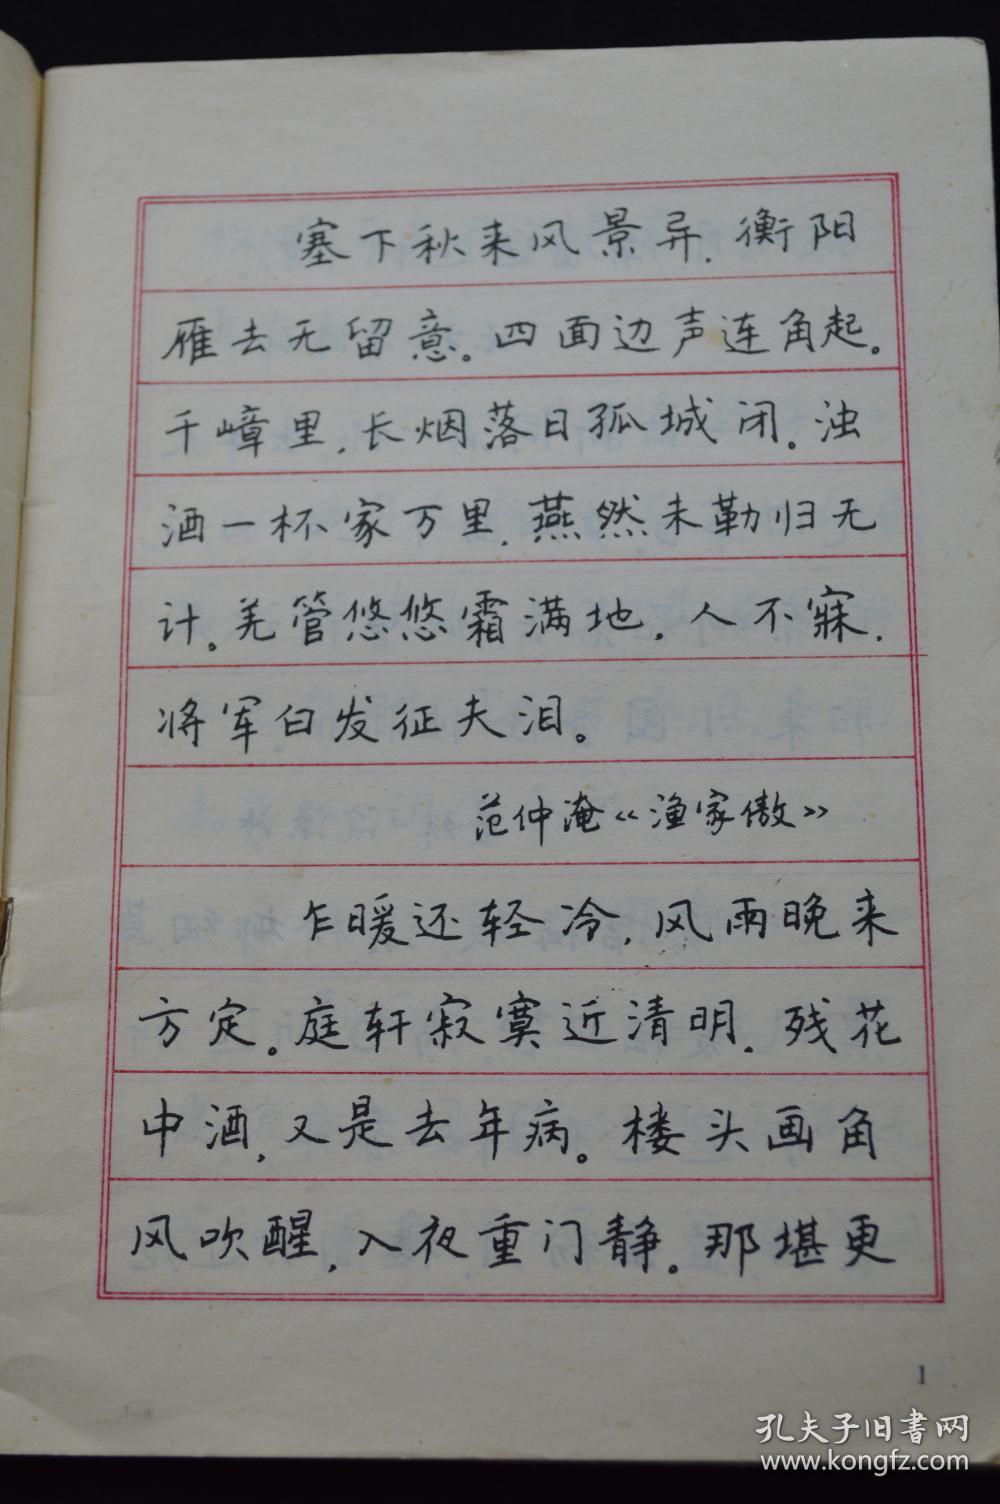 塞下秋来风景异.衡阳
雁去无留意。四面边声连角起。
千嶂里,长烟落日孤城闭。浊
酒一杯家万里.燕然未勒归无
计。羌管悠悠霜满地,人不寐.
将军白发征夫泪。
范仲淹《渔家傲》
乍暖还轻冷,风雨晚来
方定。庭轩寂寞近清明.残花
中酒,又是去年病。楼头画角
风吹醒,入夜重门静。那堪更
1
孔夫子旧书网
www.kongfz.com